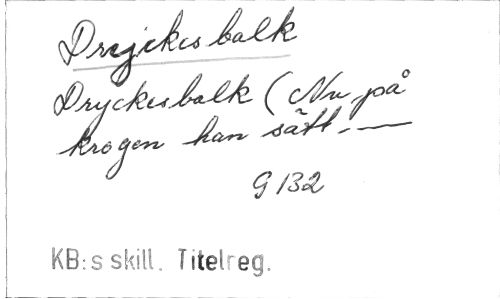 Dryckesbalk
Dryckesbalk (Nu på
krogen han sätt. —
G 132
KB:s skill. Titelreg.